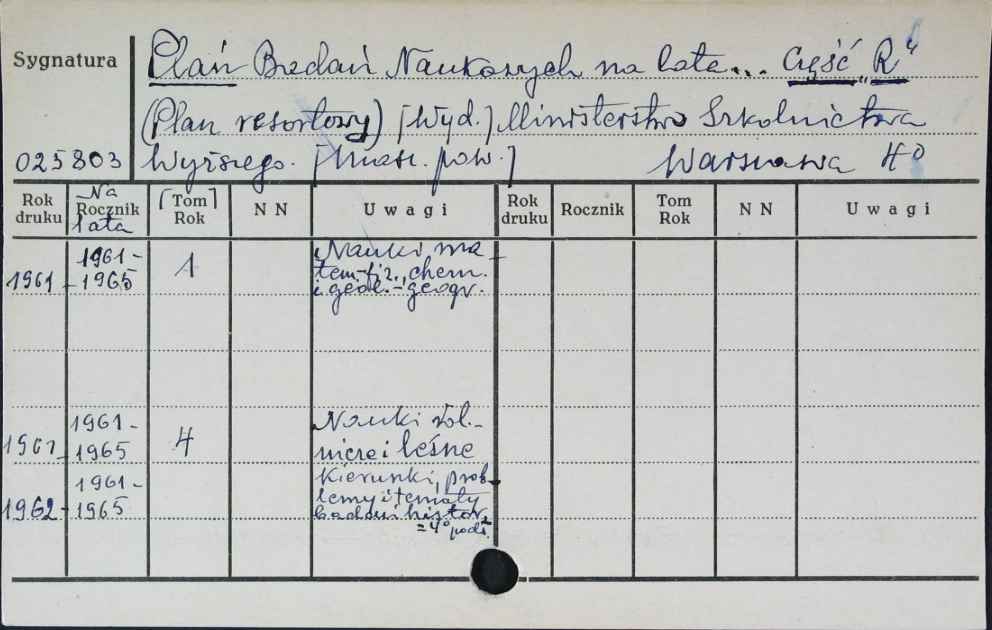 Sygnatura
Plan Badań Naukowych na lata... Część „R"
(Plan resortowy) [Wyd.] Ministerstwo Szkolnictwa
025803 Wyższego. [Masz. pow.] Warszawa 4°
Rok druku Na Rocznik lata [Tom] Rok NN Uwagi Rok druku Rocznik Tom Rok NN Uwagi
1961 1961-1965 1 Nauki ma
tem.-fiz., chem.
i geol.-geogr.
1961 1961-1965 4 Nauki rol-
nicze i leśne
1962 1961-1965 Kierunki, prob-
lemy i tematy
badań histor.
=4°